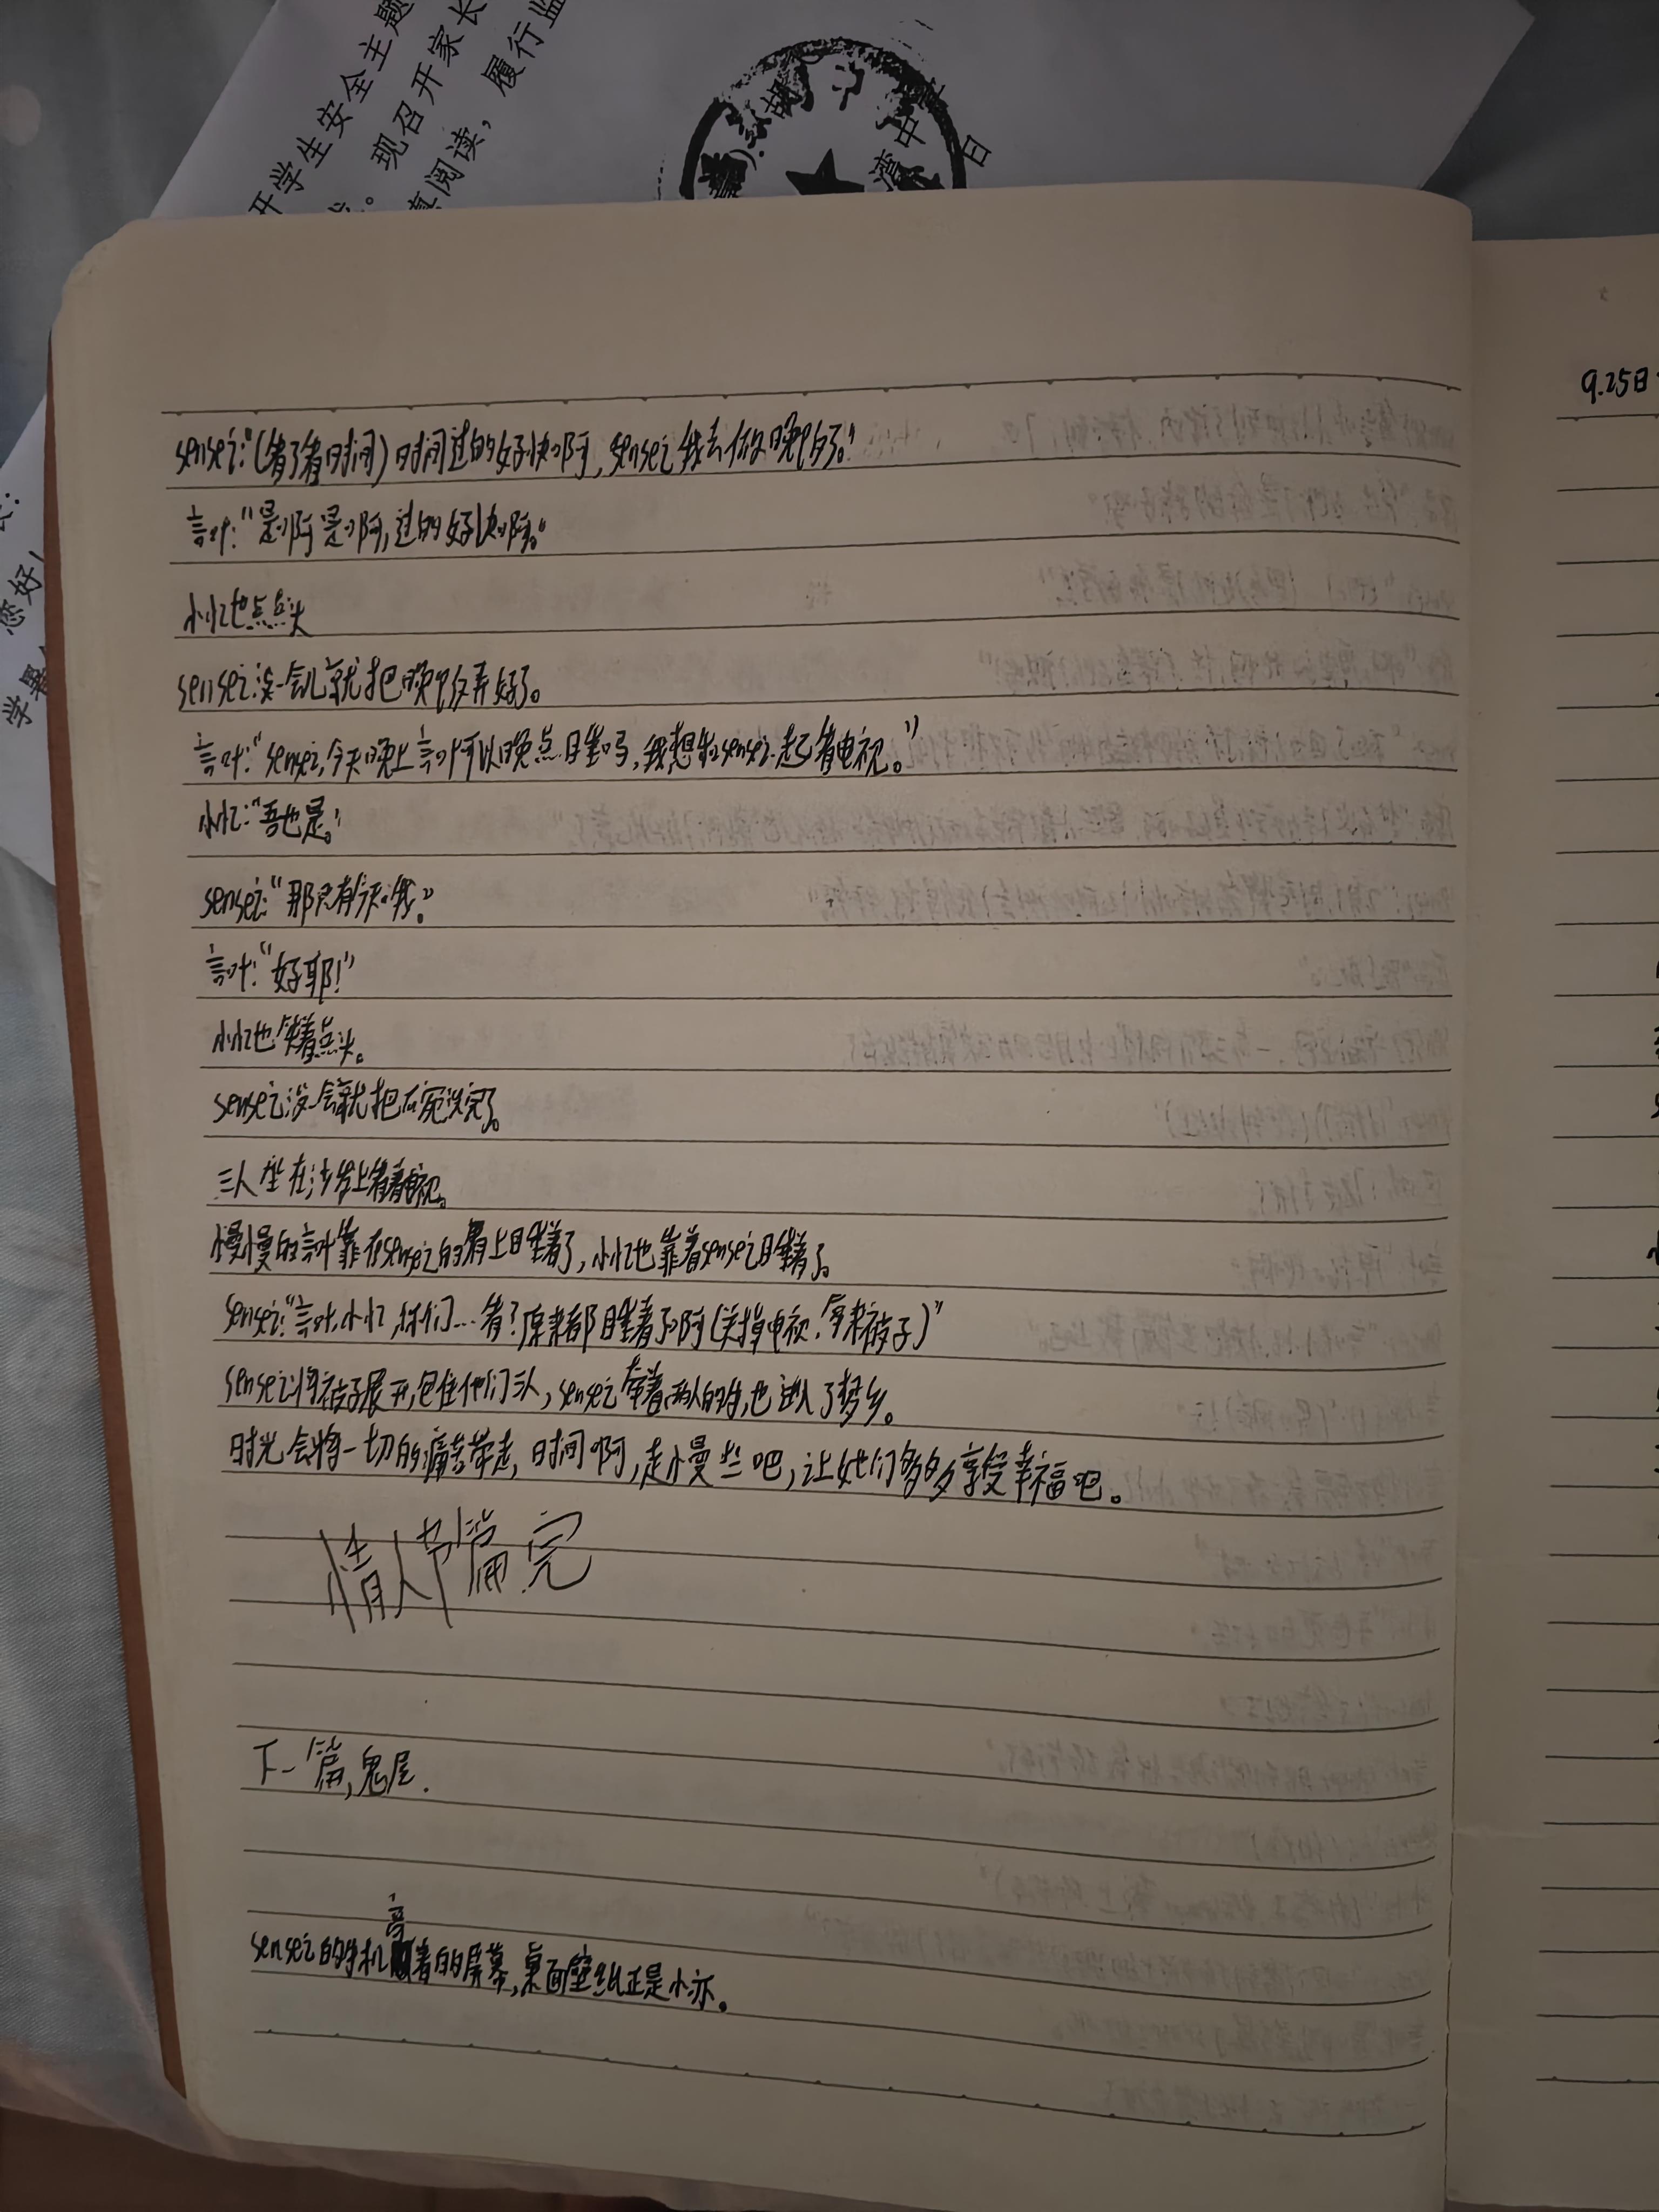 开学生安全主题
现召开家长
真阅读，履行监
湾中
日
您好！
学暑
9.25日
sensei:“(看了看时间)时间过的好快啊,sensei我去做晚饭了。”
言叶:“是啊是啊,过的好快啊。”
小忆也点点头
sensei没一会儿就把晚饭弄好了。
言叶:“sensei,今天晚上言叶可以晚点睡吗,我想和sensei一起看电视。”
小忆:“吾也是。”
sensei:“那只有今天哦。”
言叶:“好耶!”
小忆也笑着点头。
sensei没一会就把碗洗完了。
三人坐在沙发上看着电视。
慢慢的言叶靠在sensei的肩上睡着了,小忆也靠着sensei睡着了。
sensei:“言叶,小忆,你们…看?原来都睡着了啊(关掉电视,拿来被子)”
sensei将被子展开,包住他们三人,sensei牵着两人的手,也进入了梦乡。
时光会将一切的痛苦带走,时间啊,走慢些吧,让她们多多享受幸福吧。
情人节篇 完
下一篇,鬼屋.
sensei的手机亮着的屏幕,桌面壁纸正是小亦。